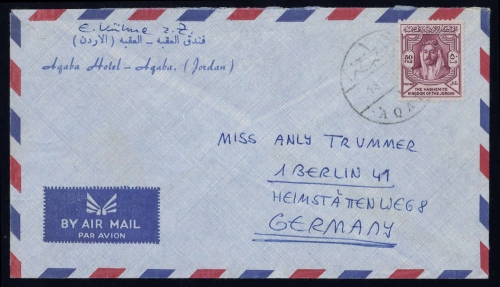 E. Kühne z. Z.
فندق العقبه – العقبه (الاردن)
Aqaba Hotel – Aqaba, (Jordan)
THE HASHEMITE
KINGDOM OF THE JORDAN
AQA
MISS ANLY TRUMMER
1 BERLIN 49
HEIMSTÄTTENWEG 8
GERMANY
BY AIR MAIL
PAR AVION